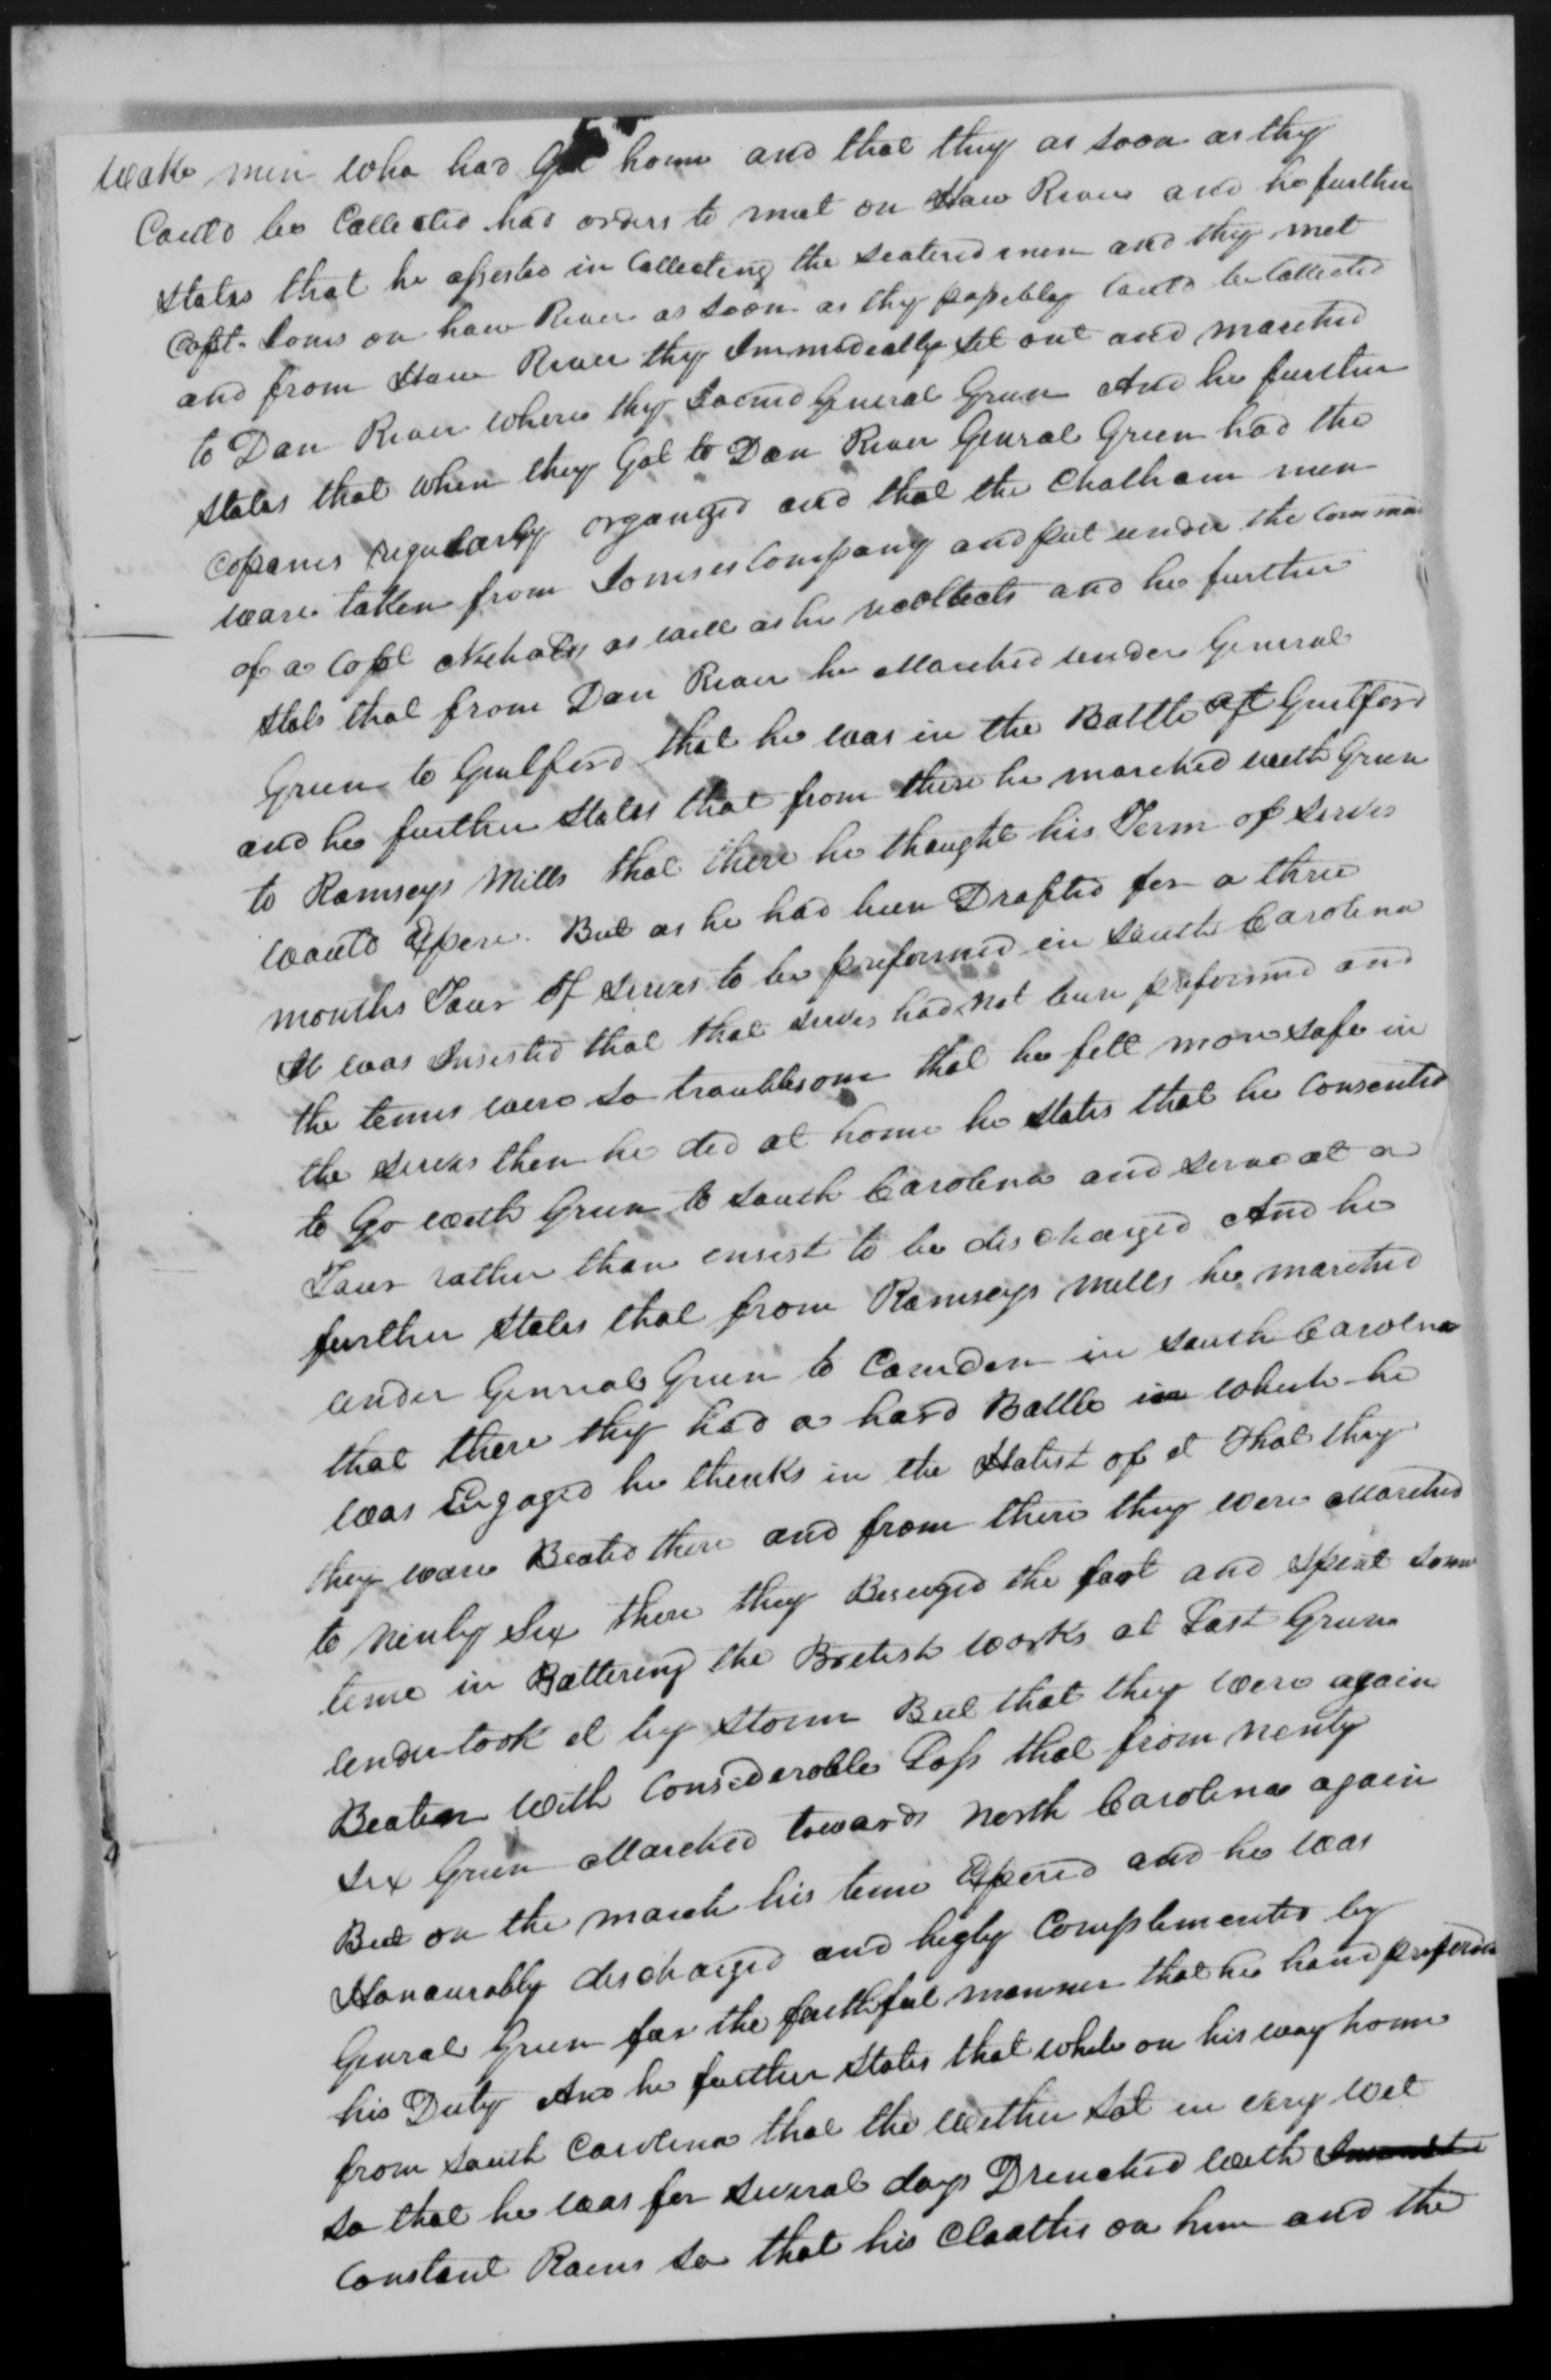 Wake men who had Got home and that they as soon as they
Could be Collected had orders to meet on Haw River and he further
states that he assested in Collecting the scatered men and they met
Capt. Jones on haw River as soon as thy possebley Could be Collected
and from Haw River thy Immedeatly set out and marched
to Dan River where thy Joened General Green And he further
states that when they Got to Dan River Genral Green had the
Copanes regularly organized and that the Chatham men
ware taken from Joneses Company and put under the Comman
of a Capt Nicholds as well as he recollects and he further
stats that from Dan River he Marched under General
Green to Guilford that he was in the Battle at Guilford
and he further states that from there he marched with Green
to Ramseys Mills that there he thought his Term of Servis
would Expere. But as he had been Drafted for a three
months Tour of Serves to be preformed in South Carolina
It was Insisted that that serves had not been preformed and
the temes were so troublesome that he felt more safe in
the serves then he did at home he states that he Consented
to Go with Green to South Carolina and serve out a
Tour rather than ensist to be discharged And he
further states that from Ramseys Mills he marched
under Genral Green to Camden in South Carolina
that there thy had a hard Battle in which he
was Engaged he thenks in the Hotest of it That they
they ware Beated there and from there they were Marched
to Ninty Six there they Beseiged the fort and Spent some
teme in Battering the Bretish works at Last Green
undertook it by storm But that they were again
Beaten with Considerable Loss that from Ninty
Six Green Marched towards North Carolina again
But on the march his teme Expered and he was
Honourably discharged and highly Complemented by
Genral Green for the faithful manner that he had preformed
his Duty And he further states that while on his way home
from South Carolina that the wether Set in very wet
so that he was for several days Drenched with
Constant Rains so that his Cloathes on him and the